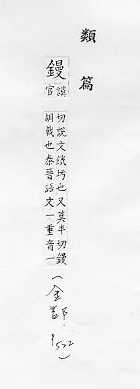 類篇
鏝謨官
切說文鐵圬也又莫半切鏝
胡戟也泰晉語文一重音一
(金部.